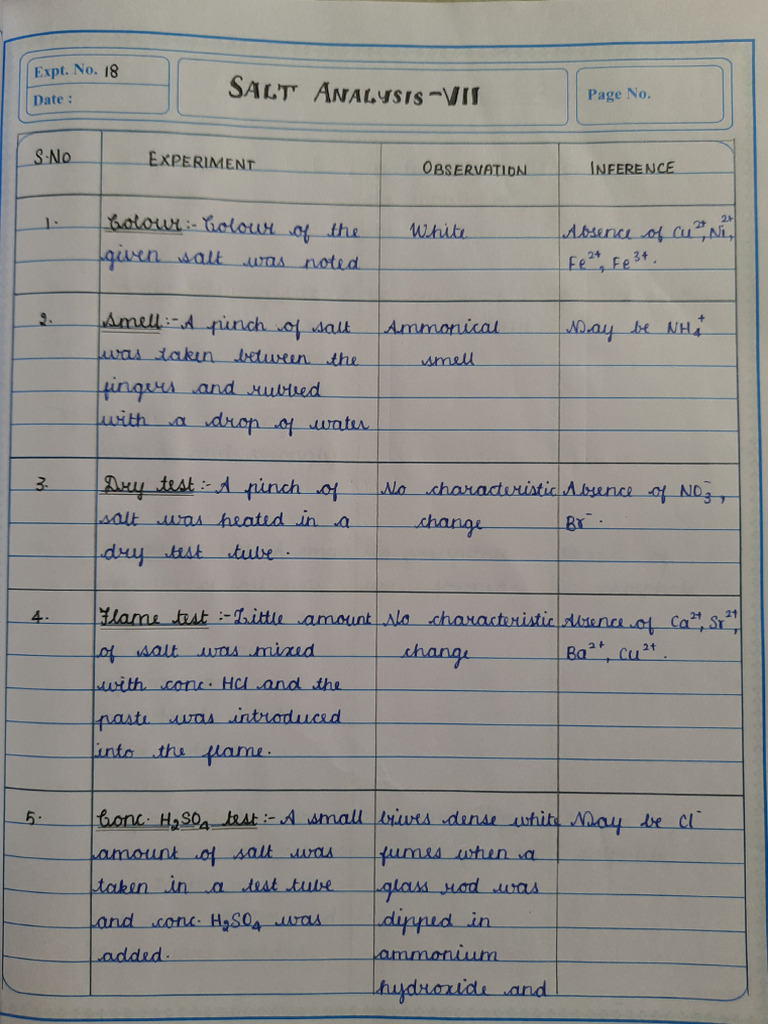 Expt. No. 18
Date :
SALT ANALYSIS-VII
Page No.
S.NO EXPERIMENT OBSERVATION INFERENCE
1. Colour:- Colour of the
given salt was noted
White
Absence of Cu²⁺, Ni²⁺,
Fe²⁺, Fe³⁺.
2. Smell:- A pinch of salt
was taken between the
fingers and rubbed
with a drop of water
Ammonical
smell
May be NH₄⁺
3. Dry test:- A pinch of
salt was heated in a
dry test tube.
No characteristic
change
Absence of NO₃⁻,
Br⁻.
4. Flame test:- Little amount
of salt was mixed
with conc. HCl and the
paste was introduced
into the flame.
No characteristic
change
Absence of Ca²⁺, Sr²⁺,
Ba²⁺, Cu²⁺.
5. Conc. H₂SO₄ test:- A small
amount of salt was
taken in a test tube
and conc. H₂SO₄ was
added.
Gives dense white
fumes when a
glass rod was
dipped in
ammonium
hydroxide and
May be Cl⁻